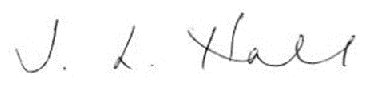 J. L. Hall